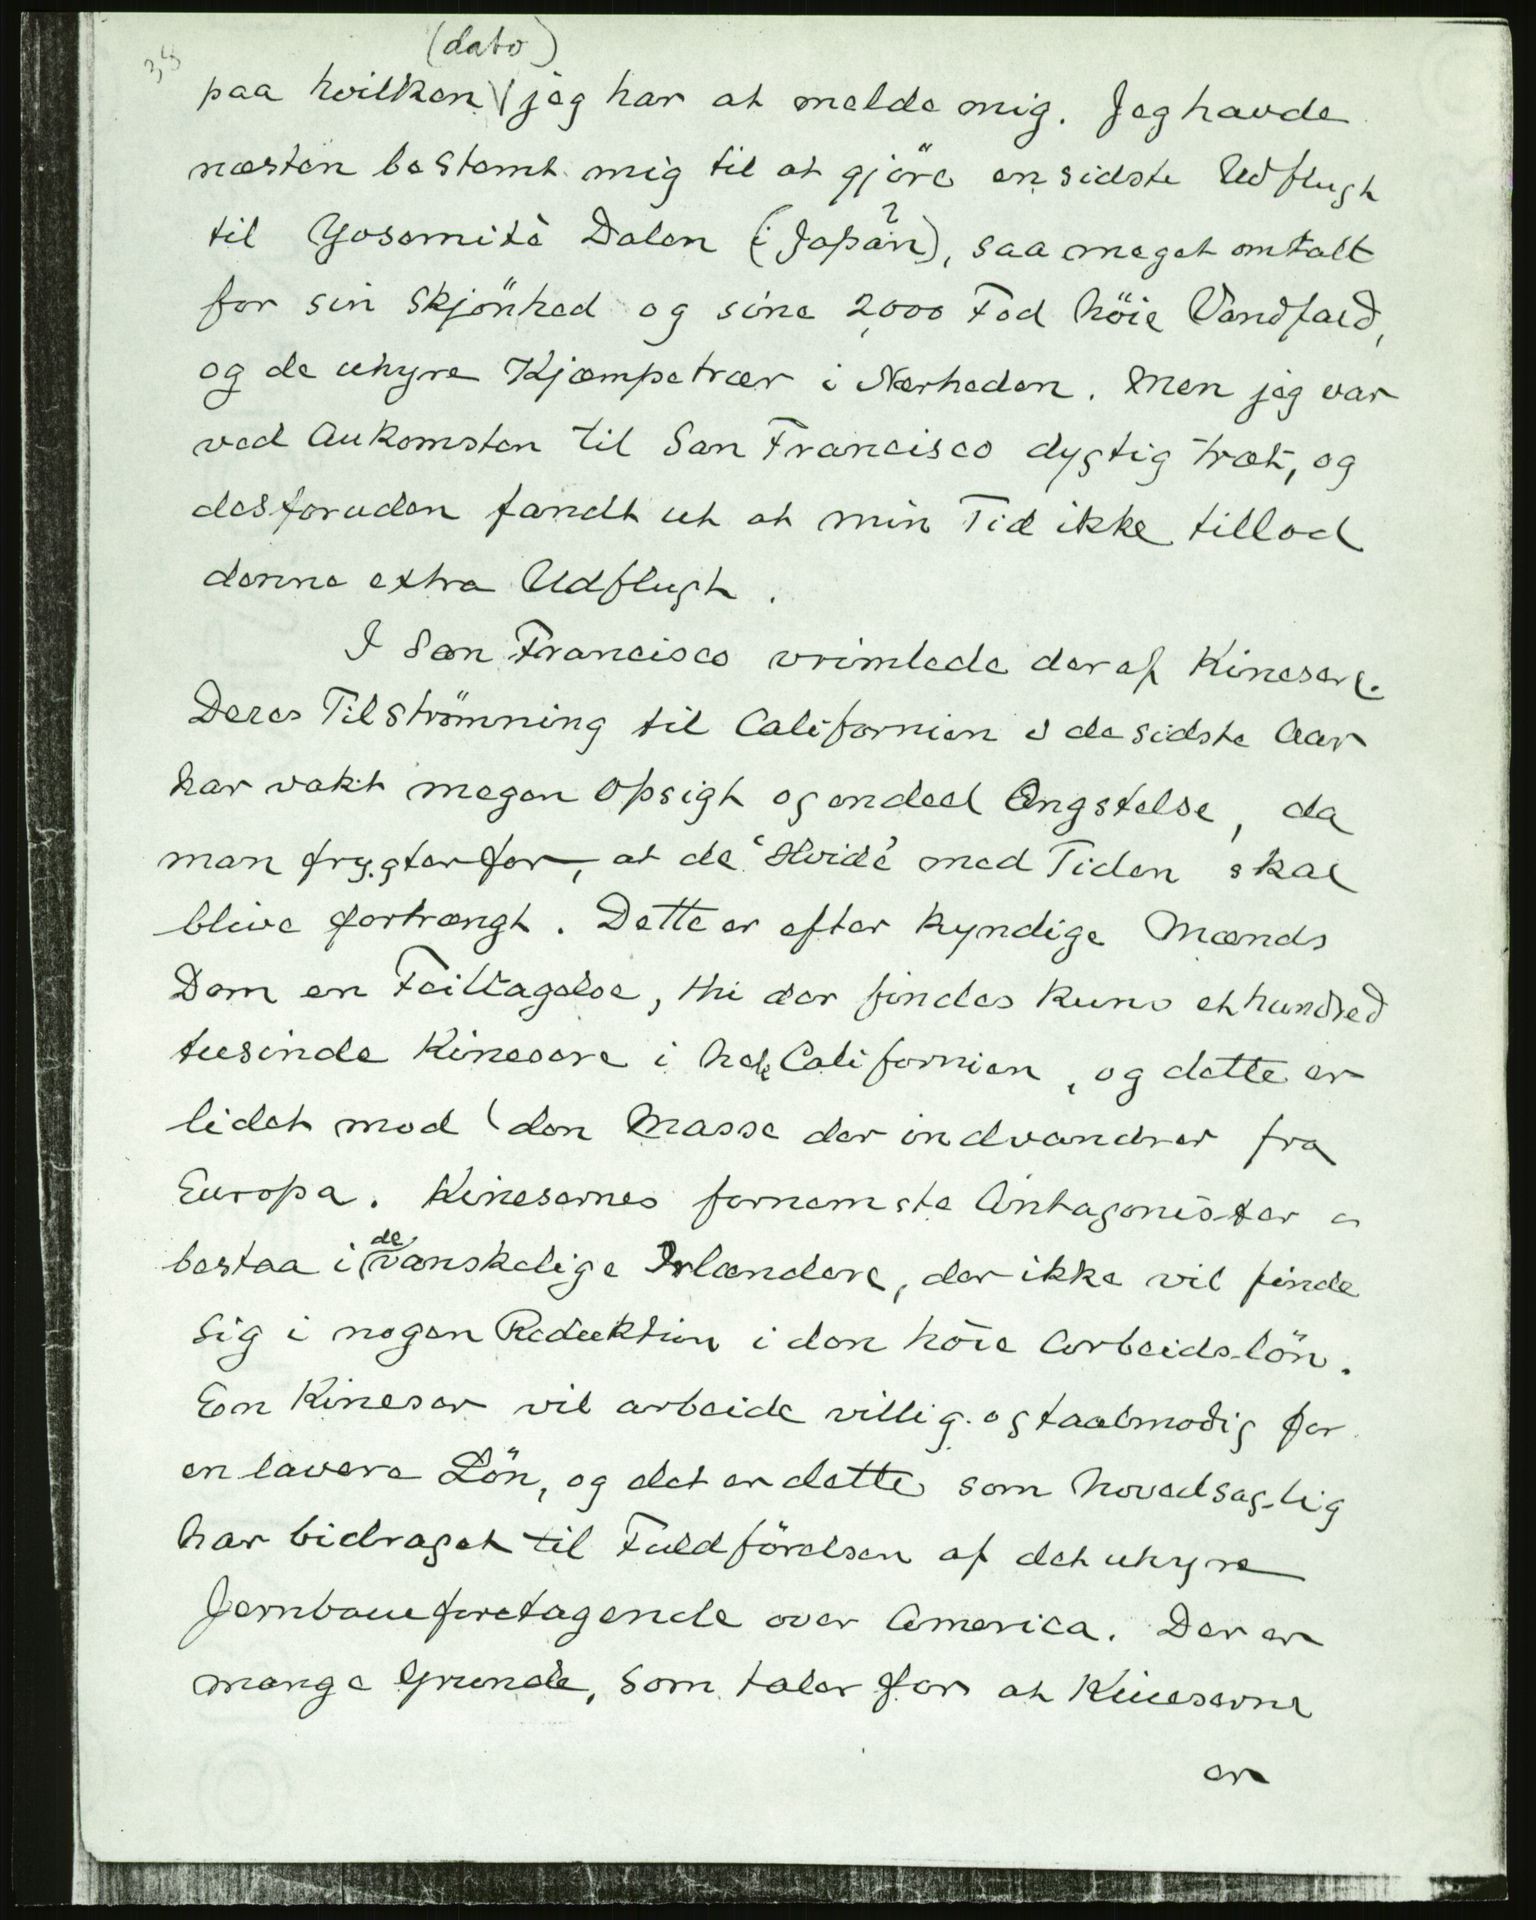 38
(dato)
paa hvilken jeg har at melde mig. Jeg havde
næsten bestemt mig til at gjöre en sidste Udflugt
til Yosemitè Dalen (i Japan?), saa meget omtalt
for sin Skjönhed og sine 2,000 Fod höie Vandfald,
og de uhyre Kjæmpetrær i Nærheden. Men jeg var
ved Ankomsten til San Francisco dygtig træt, og
desforuden fandt ut at min Tid ikke tillod
denne extra Udflugt.
I San Francisco vrimlede der af Kinesere.
Deres Tilströmning til Californien i de sidste Aar
har vakt megen Opsigt og endeel Ængstelse, da
man frygter for, at de 'Hvide' med Tiden skal
blive fortrængt. Dette er efter kyndige Mænds
Dom en Feiltagelse, thi der findes kuns et hundred
tusinde Kinesere i hele Californien, og dette er
lidet mod den Masse der indvandrer fra
Europa. Kinesernes fornemste Antagonister
bestaa i de vanskelige Irlændere, der ikke vil finde
sig i nogen Reduktion i den höie Arbeidslön.
En Kineser vil arbeide villig og taalmodig for
en lavere Lön, og det er dette som hovedsaglig
har bidraget til Fuldförelsen af det uhyre
Jernbaneforetagende over America. Der er
mange Grunde, som taler for at Kineserne
er